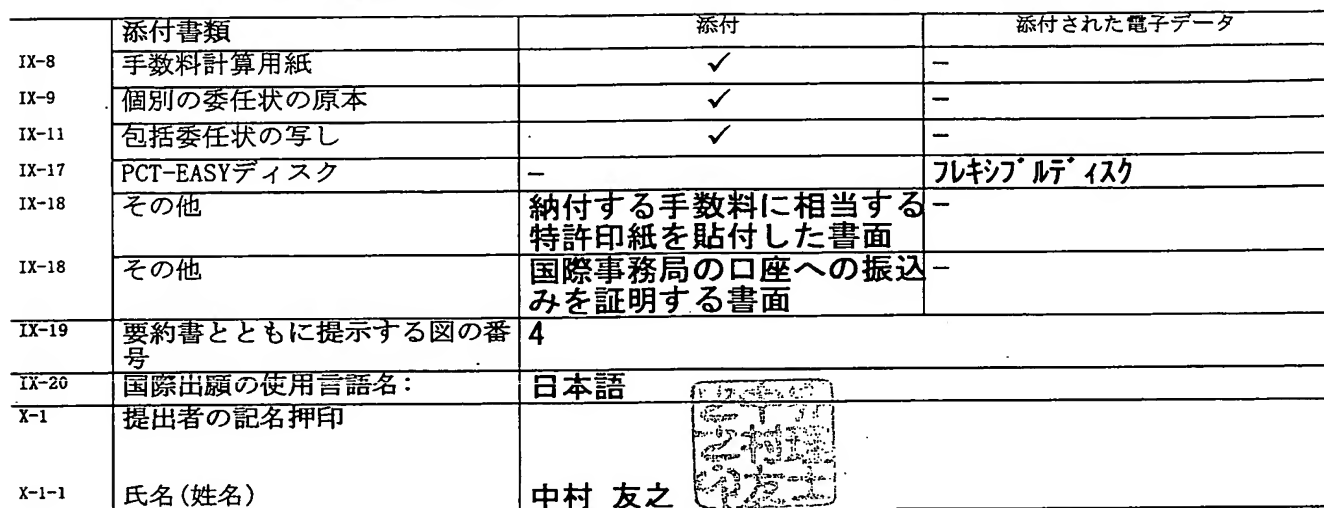 添付書類 添付 添付された電子データ
IX-8 手数料計算用紙 ✓ −
IX-9 個別の委任状の原本 ✓ −
IX-11 包括委任状の写し ✓ −
IX-17 PCT-EASYディスク − フレキシブルディスク
IX-18 その他 納付する手数料に相当する −
特許印紙を貼付した書面
IX-18 その他 国際事務局の口座への振込 −
みを証明する書面
IX-19 要約書とともに提示する図の番 4
号
IX-20 国際出願の使用言語名: 日本語
X-1 提出者の記名押印
X-1-1 氏名(姓名) 中村 友之